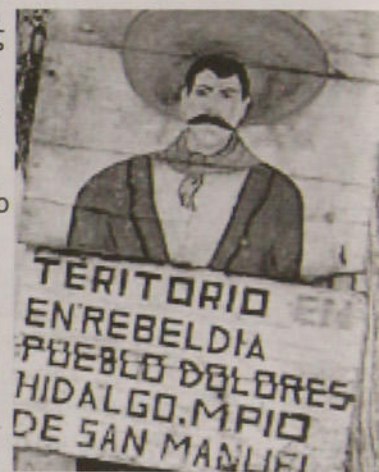 TERITORIO EN
EN REBELDIA
PUEBLO DOLORES
HIDALGO. MPIO
DE SAN MANUEL